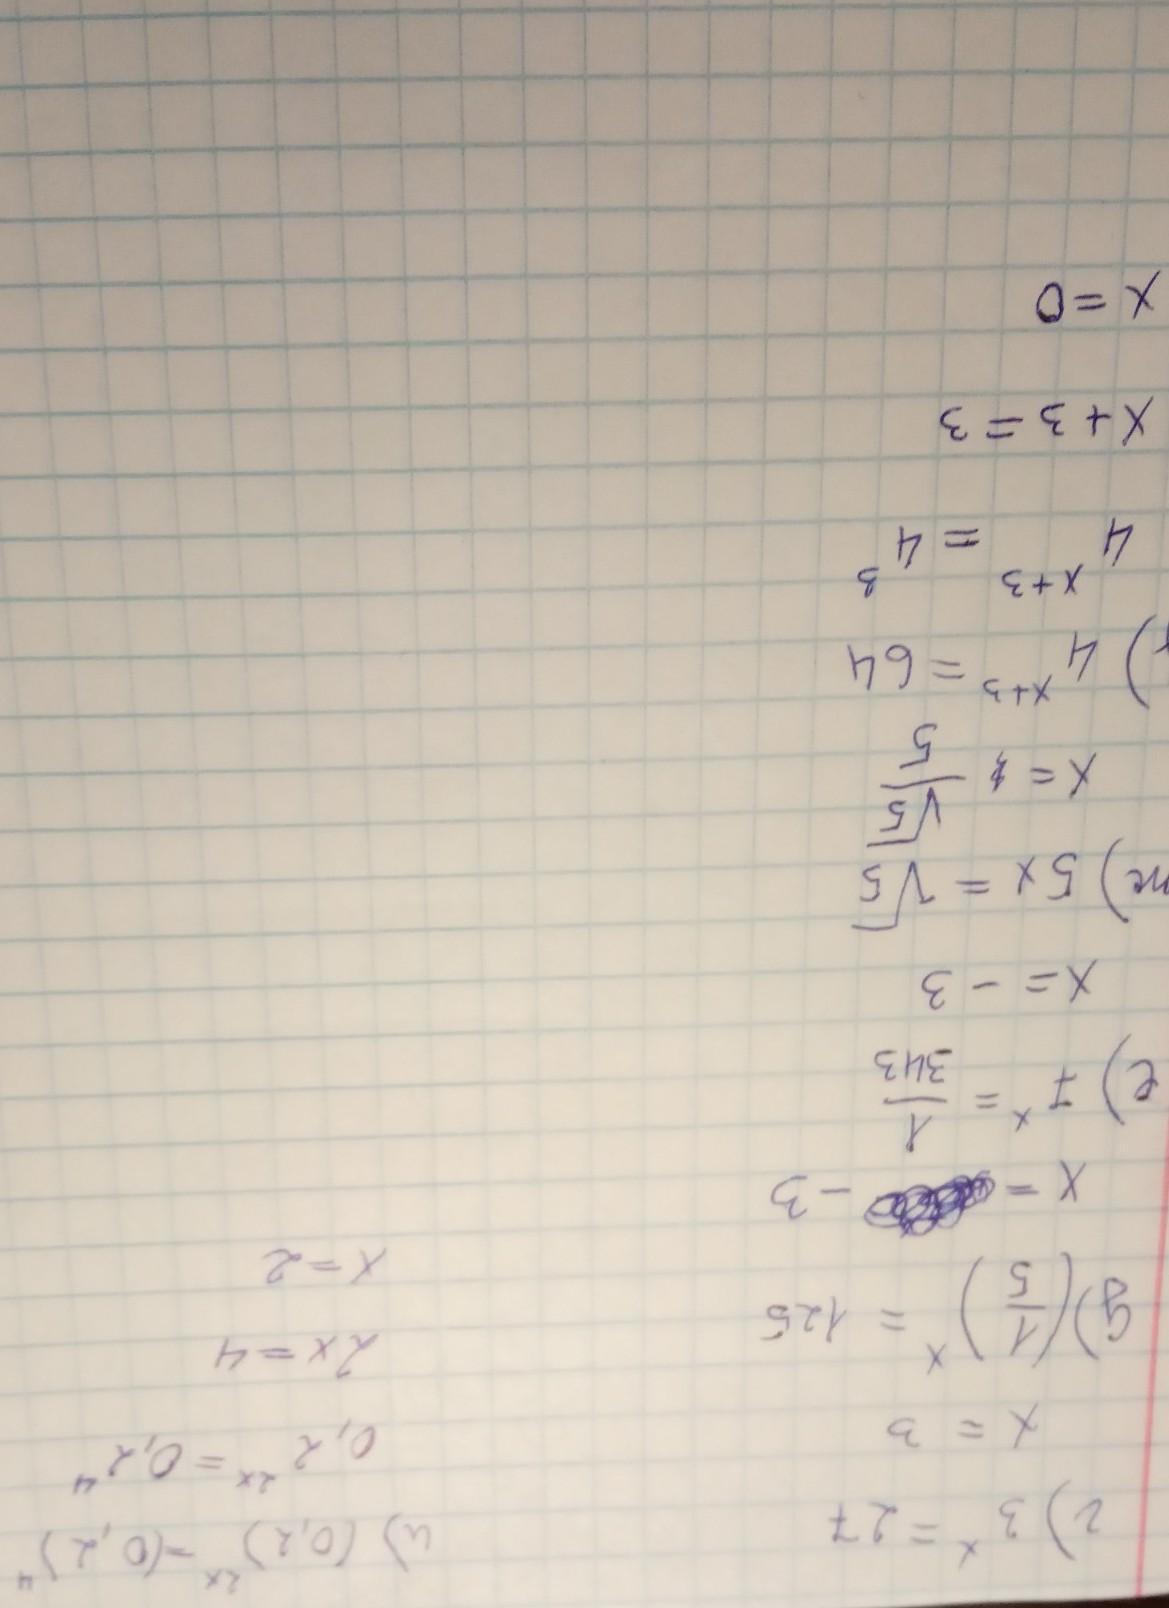 г) 3^x = 27
x = 3
g) (1/5)^x = 125
x = -3
е) 7^x = 1/343
x = -3
ж) 5x = √5
x = √5/5
) 4^{x+3} = 64
4^{x+3} = 4^3
x+3 = 3
x = 0
и) (0,2)^{2x} = (0,2)^4
0,2^{2x} = 0,2^4
2x = 4
x = 2